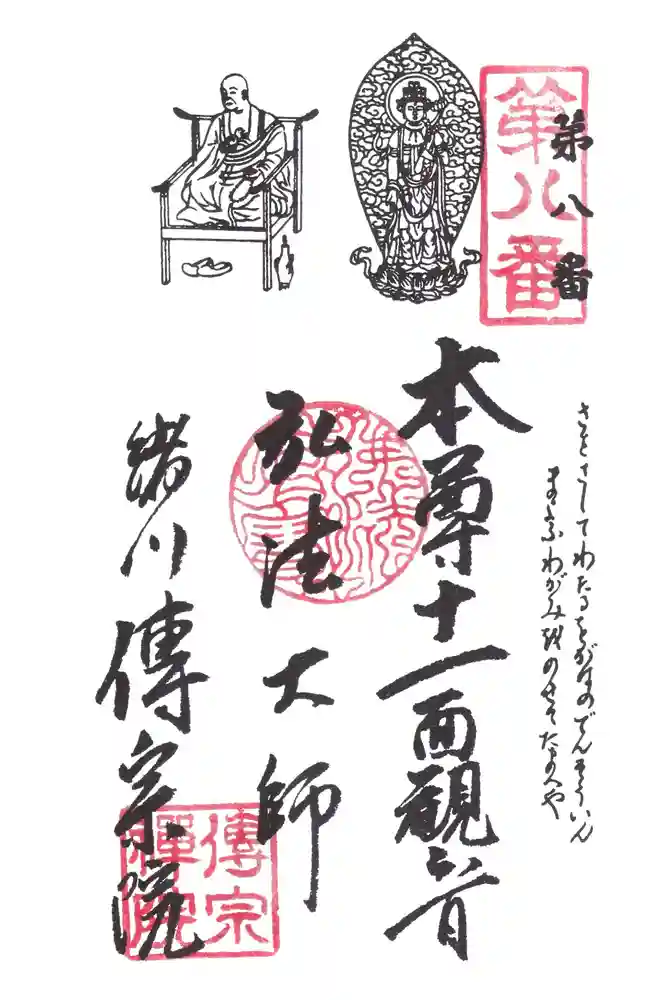 第八番
第八番
さをさしてわたるをがはのでんそういん
まよふわがみをのせてたまへや
本尊十一面観音
弘法大師
緒川傳宗院
傳宗
禪院